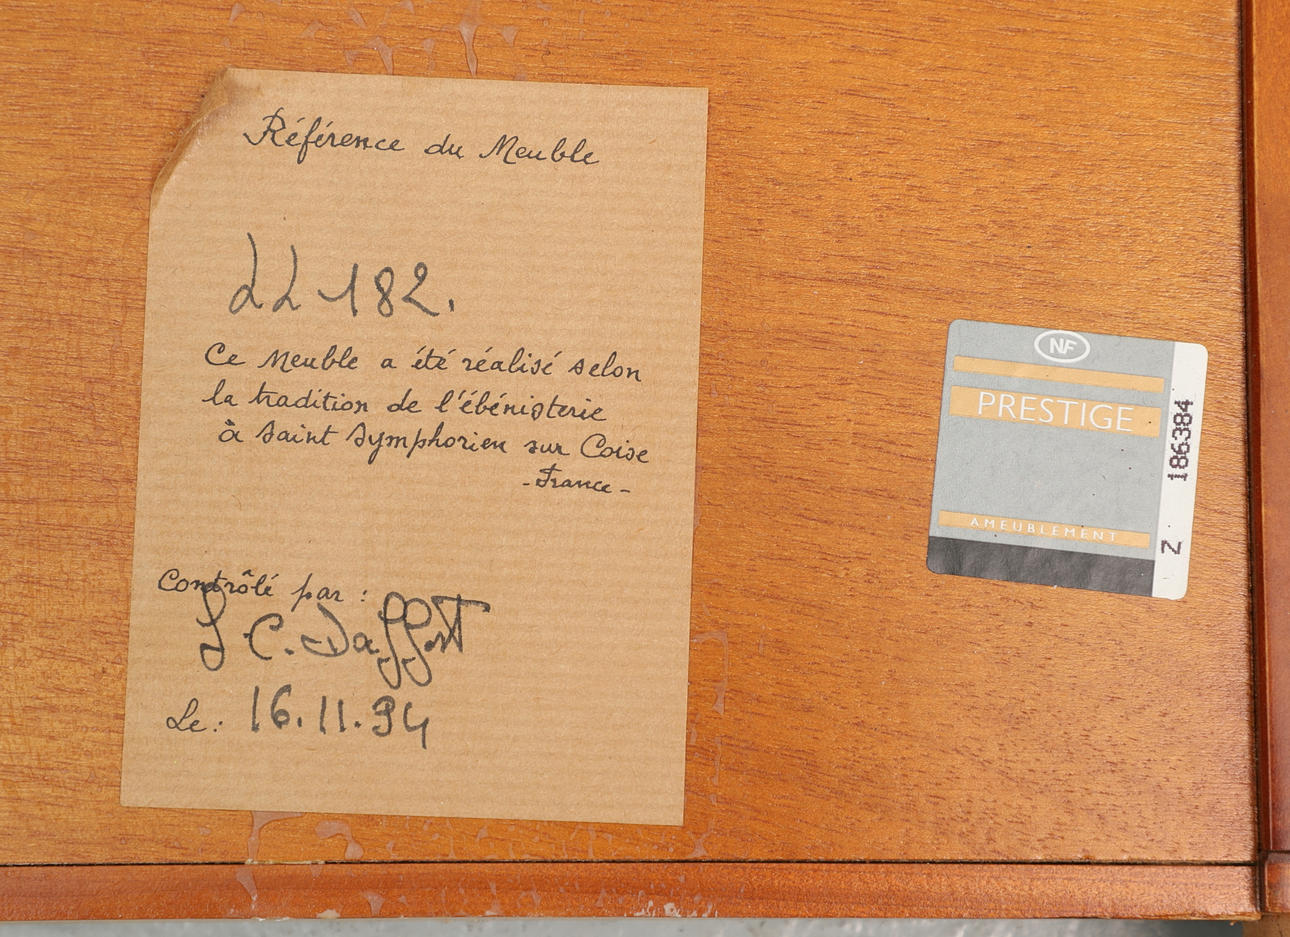 Référence du Meuble
22 182.
Ce Meuble a été réalisé selon
la tradition de l'ébénisterie
à Saint Symphorien sur Coise
- France -
Contrôlé par :
C.
Le : 16.11.94
NF
PRESTIGE
AMEUBLEMENT
Z 186384